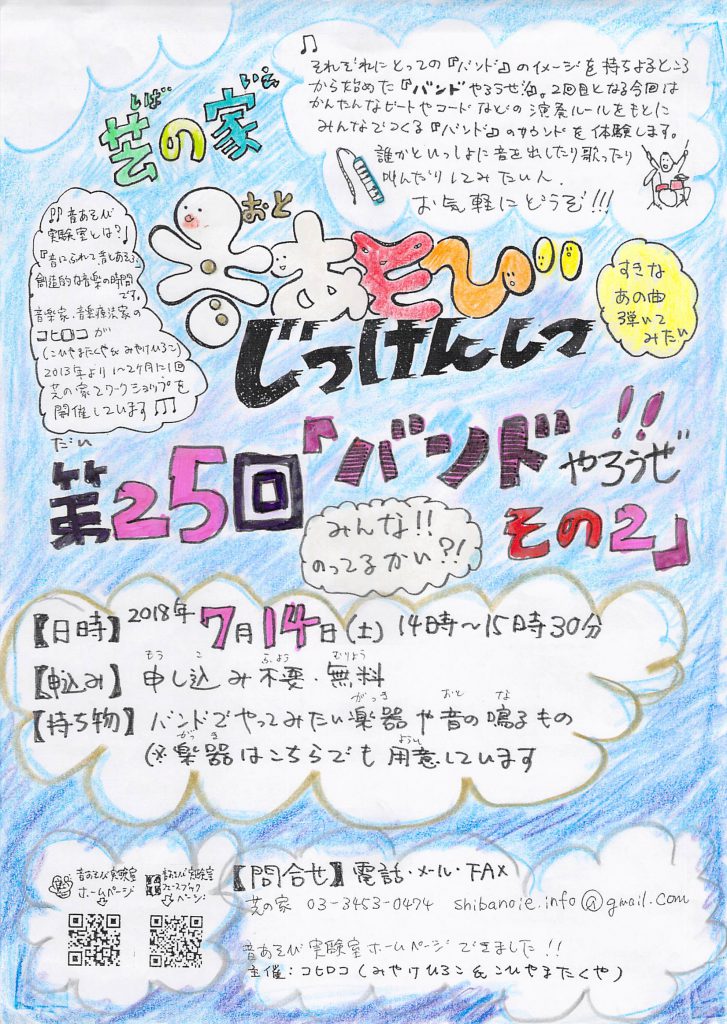 それぞれにとっての『バンド』のイメージを持ちよるところ
から始めた『バンドやろうぜ』。2回目となる今回は
かんたんなビートやコードなどの演奏ルールをもとに
みんなでつくる『バンド』のサウンドを体験します。
誰かといっしょに音を出したり歌ったり
叫んだりしてみたい人、
お気軽にどうぞ!!!
しば いえ
芝の家
♪♪音あそび
実験室とは?♪
『音にふれて音とあそぶ』
創造的な音楽の時間
です。
音楽家・音楽療法家の
コヒロコが
(こひやまたくや&みやけひろこ)
2013年より1~2ヶ月に1回
芝の家でワークショップを
開催しています♫
おと
音あそび
じっけんしつ
すきな
あの曲
弾いて
みたい
だい
第25回「バンドやろうぜ!!
その2」
みんな!!
のってるかい?!
【日時】2018年7月14日(土) 14時~15時30分
もう こ ふよう むりょう
【申込み】申し込み不要・無料
がっき おと な
【持ち物】バンドでやってみたい楽器や音の鳴るもの
がっき ようい
(※楽器はこちらでも用意しています
音あそび実験室
ホームページ
音あそび実験室
フェースブック
ページ
【問合せ】電話・メール・FAX
芝の家 03-3453-0474 shibanoie.info@gmail.com
音あそび実験室ホームページできました!!
主催:コヒロコ(みやけひろこ&こひやまたくや)